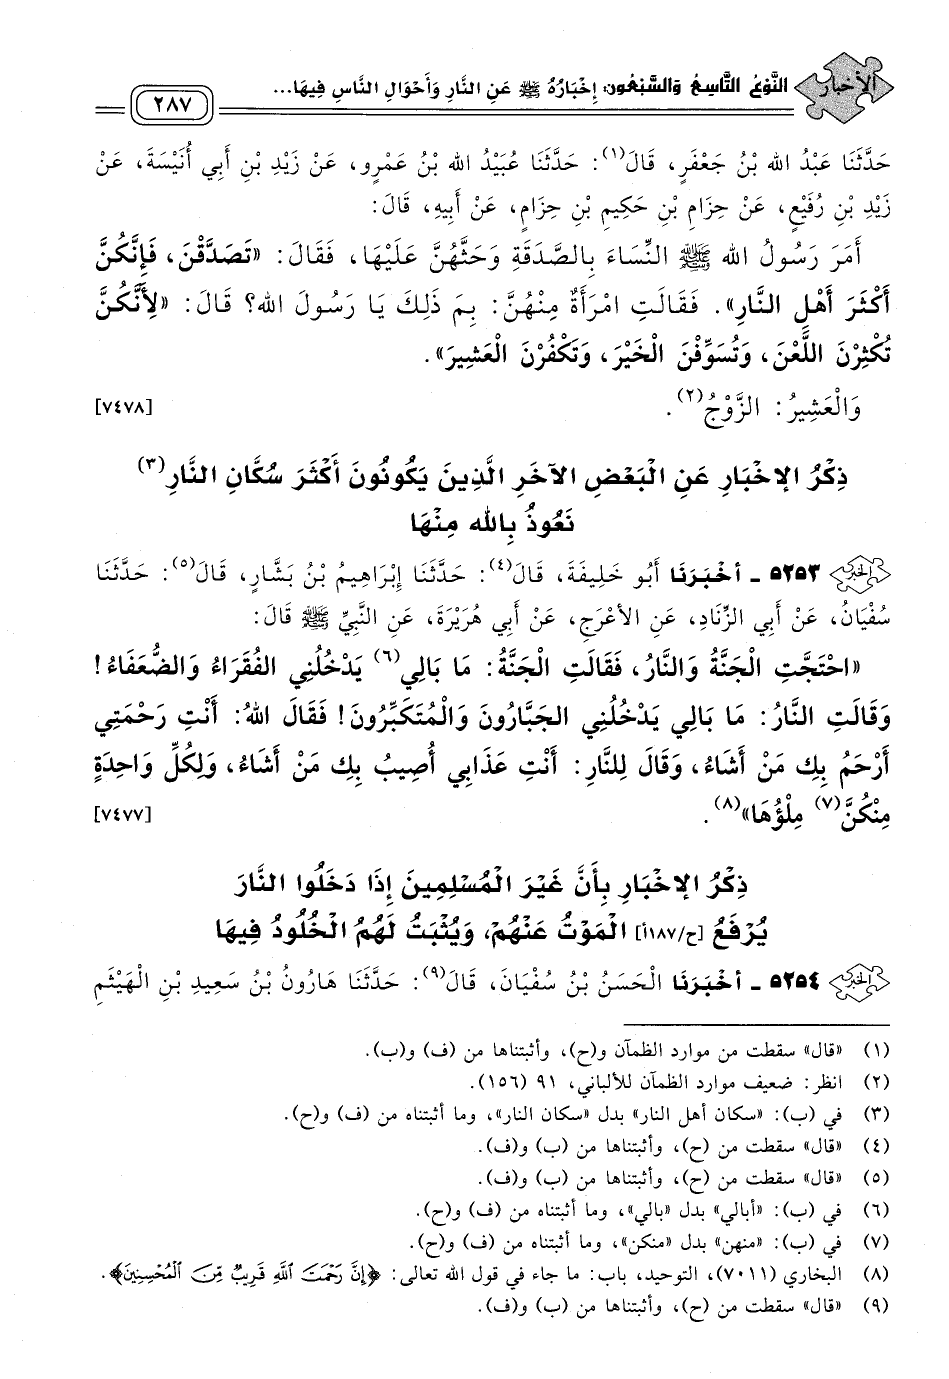 الأخبار
النَّوْعُ التَّاسِعُ وَالسَّبْعُون: إِخْبَارُهُ ﷺ عَنِ النَّارِ وَأَحْوَالِ النَّاسِ فِيهَا...
٢٨٧
حَدَّثَنَا عَبْدُ اللهِ بْنُ جَعْفَرٍ، قَالَ(١): حَدَّثَنَا عُبَيْدُ اللهِ بْنُ عَمْرٍو، عَنْ زَيْدِ بْنِ أَبِي أُنَيْسَةَ، عَنْ
زَيْدِ بْنِ رُفَيْعٍ، عَنْ حِزَامِ بْنِ حَكِيمِ بْنِ حِزَامٍ، عَنْ أَبِيهِ، قَالَ:
أَمَرَ رَسُولُ اللهِ ﷺ النِّسَاءَ بِالصَّدَقَةِ وَحَثَّهُنَّ عَلَيْهَا، فَقَالَ: «تَصَدَّقْنَ، فَإِنَّكُنَّ
أَكْثَرَ أَهْلِ النَّارِ». فَقَالَتِ امْرَأَةٌ مِنْهُنَّ: بِمَ ذَلِكَ يَا رَسُولَ اللهِ؟ قَالَ: «لِأَنَّكُنَّ
تُكْثِرْنَ اللَّعْنَ، وَتُسَوِّفْنَ الْخَيْرَ، وَتَكْفُرْنَ الْعَشِيرَ».
وَالْعَشِيرُ: الزَّوْجُ(٢). [٧٤٧٨]
ذِكْرُ الإخْبَارِ عَنِ الْبَعْضِ الآخَرِ الَّذِينَ يَكُونُونَ أَكْثَرَ سُكَّانِ النَّارِ(٣)
نَعُوذُ بِاللهِ مِنْهَا
الخبر ٥٢٥٣ ـ أَخْبَرَنَا أَبُو خَلِيفَةَ، قَالَ(٤): حَدَّثَنَا إِبْرَاهِيمُ بْنُ بَشَّارٍ، قَالَ(٥): حَدَّثَنَا
سُفْيَانُ، عَنْ أَبِي الزِّنَادِ، عَنِ الأَعْرَجِ، عَنْ أَبِي هُرَيْرَةَ، عَنِ النَّبِيِّ ﷺ قَالَ:
«احْتَجَّتِ الْجَنَّةُ وَالنَّارُ، فَقَالَتِ الْجَنَّةُ: مَا بَالِي(٦) يَدْخُلُنِي الْفُقَرَاءُ وَالضُّعَفَاءُ!
وَقَالَتِ النَّارُ: مَا بَالِي يَدْخُلُنِي الْجَبَّارُونَ وَالْمُتَكَبِّرُونَ! فَقَالَ اللهُ: أَنْتِ رَحْمَتِي
أَرْحَمُ بِكِ مَنْ أَشَاءُ، وَقَالَ لِلنَّارِ: أَنْتِ عَذَابِي أُصِيبُ بِكِ مَنْ أَشَاءُ، وَلِكُلِّ وَاحِدَةٍ
مِنْكُنَّ(٧) مِلْؤُهَا»(٨). [٧٤٧٧]
ذِكْرُ الإخْبَارِ بِأَنَّ غَيْرَ الْمُسْلِمِينَ إِذَا دَخَلُوا النَّارَ
يُرْفَعُ [ح/١٨٧أ] الْمَوْتُ عَنْهُمْ، وَيُثْبَتُ لَهُمُ الْخُلُودُ فِيهَا
الخبر ٥٢٥٤ ـ أَخْبَرَنَا الْحَسَنُ بْنُ سُفْيَانَ، قَالَ(٩): حَدَّثَنَا هَارُونُ بْنُ سَعِيدِ بْنِ الْهَيْثَمِ
(١) «قال» سقطت من موارد الظمآن و(ح)، وأثبتناها من (ف) و(ب).
(٢) انظر: ضعيف موارد الظمآن للألباني، ٩١ (١٥٦).
(٣) في (ب): «سكان أهل النار» بدل «سكان النار»، وما أثبتناه من (ف) و(ح).
(٤) «قال» سقطت من (ح)، وأثبتناها من (ب) و(ف).
(٥) «قال» سقطت من (ح)، وأثبتناها من (ب) و(ف).
(٦) في (ب): «أبالي» بدل «بالي»، وما أثبتناه من (ف) و(ح).
(٧) في (ب): «منهن» بدل «منكن»، وما أثبتناه من (ف) و(ح).
(٨) البخاري (٧٠١١)، التوحيد، باب: ما جاء في قول الله تعالى: ﴿إِنَّ رَحْمَتَ اللَّهِ قَرِيبٌ مِّنَ الْمُحْسِنِينَ﴾.
(٩) «قال» سقطت من (ح)، وأثبتناها من (ب) و(ف).